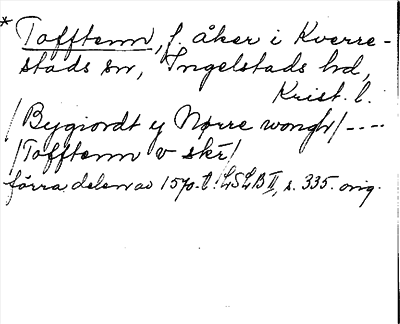 * Tofftenn, f. åker i Kverre-
stads sn, Ingelstads hd,
Krist. l.
/Bygiordt y Nørre wongh/----
/Tofftenn v skr/
förra delen av 1570-t. LSLB II, s. 335. orig.